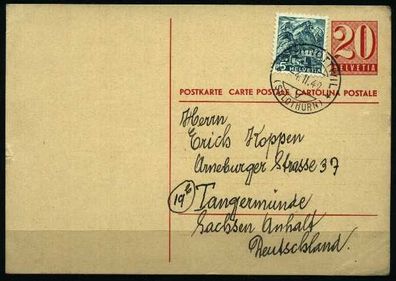 20
HELVETIA
5
HELVETIA
4.II.49
(SOLOTHURN)
POSTKARTE CARTE POSTALE CARTOLINA POSTALE
Herrn
Erich Koppen
Arneburger Strasse 37
19b Tangermünde
Sachsen Anhalt
Deutschland.